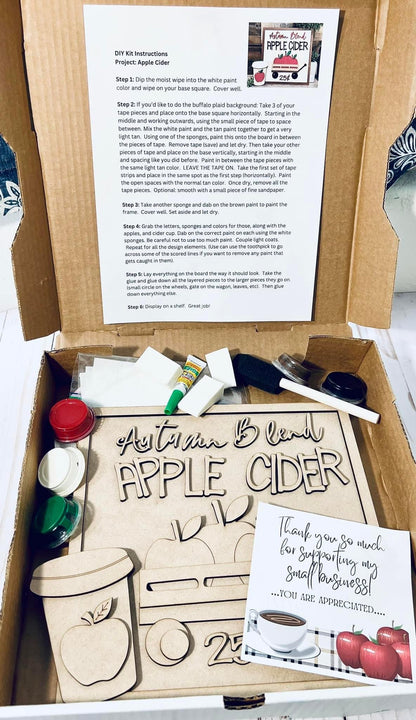 DIY Kit Instructions
Project: Apple Cider
Autumn Blend
APPLE CIDER
25¢
Step 1: Dip the moist wipe into the white paint
color and wipe on your base square. Cover well.
Step 2: If you'd like to do the buffalo plaid background: Take 3 of your
tape pieces and place onto the base square horizontally. Starting in the
middle and working outwards, using the small piece of tape to space
between. Mix the white paint and the tan paint together to get a very
light tan. Using one of the sponges, paint this onto the board in between
the pieces of tape. Remove tape (save) and let dry. Then take your other
pieces of tape and place on the base vertically, starting in the middle
and spacing like you did before. Paint in between the tape pieces with
the same light tan color. LEAVE THE TAPE ON. Take the first set of tape
strips and place in the same spot as the first step (horizontally). Paint
the open spaces with the normal tan color. Once dry, remove all the
tape pieces. Optional; smooth with a small piece of fine sandpaper.
Step 3: Take another sponge and dab on the brown paint to paint the
frame. Cover well. Set aside and let dry.
Step 4: Grab the letters, sponges and colors for those, along with the
apples, and cider cup. Dab on the correct paint on each using the white
sponges. Be careful not to use too much paint. Couple light coats.
Repeat for all the design elements. (Use can use the toothpick to go
across some of the scored lines if you want to remove any paint that
gets caught in them).
Step 5: Lay everything on the board the way it should look. Take the
glue and glue down all the layered pieces to the larger pieces they go on
(small circle on the wheels, gate on the wagon, leaves, etc). Then glue
down everything else.
Step 6: Display on a shelf. Great job!
Autumn Blend
APPLE CIDER
25
Thank you so much
for supporting my
small business!
...YOU ARE APPRECIATED....